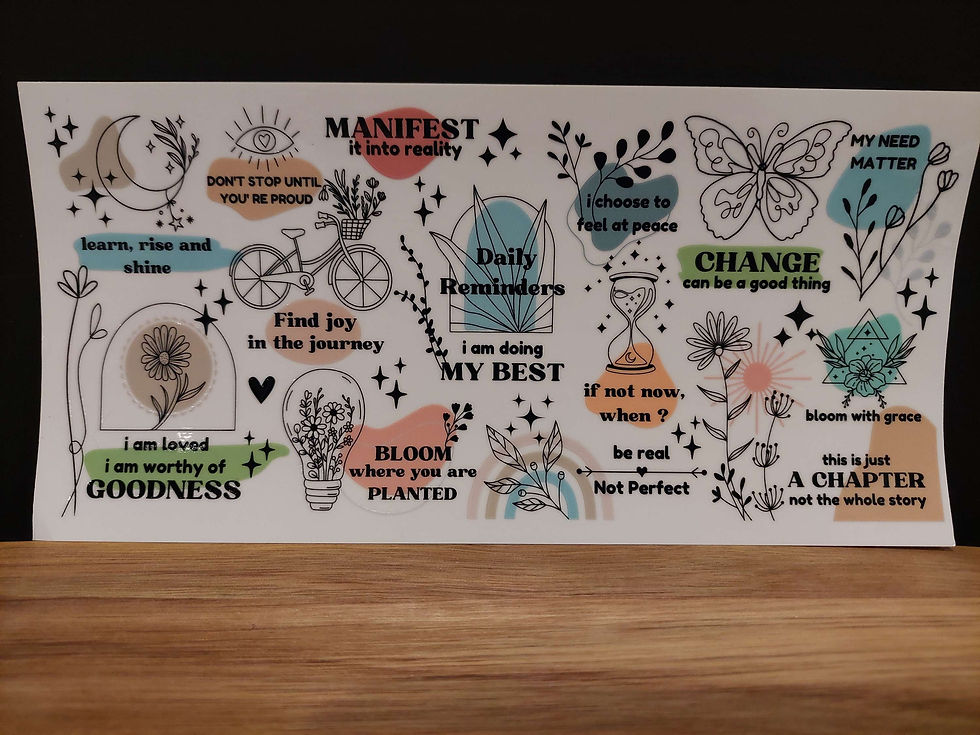 MANIFEST
it into reality
DON'T STOP UNTIL
YOU' RE PROUD
MY NEED
MATTER
i choose to
feel at peace
learn, rise and
shine
Daily
Reminders
CHANGE
can be a good thing
Find joy
in the journey
i am doing
MY BEST
if not now,
when ?
bloom with grace
i am loved
i am worthy of
GOODNESS
BLOOM
where you are
PLANTED
be real
Not Perfect
this is just
A CHAPTER
not the whole story